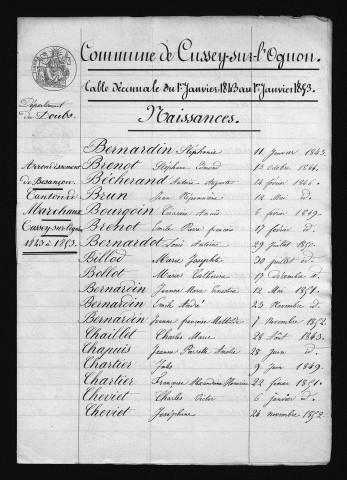 Commune de Cussey-sur-l'Ognon.
Table Décennale du 1er Janvier 1843 au 1er Janvier 1853.
Département du Doubs.
Arrondissement de Besançon.
Canton de Marchaux
Cussey-sur-l'Ognon
1843 à 1853.
Naissances.
Bernardin Stéphanie 11 janvier 1843.
Brenot Stéphane Edouard 13 octobre 1844.
Bécherand Antoine 14 février 1846.
Brun Jean 12 Mai d°.
Bourgoin 6 février 1849.
Brenot Emile Pierre françois 17 février d°.
Bernardot Louis Antoine 29 juillet 1850.
Billod Marie Josephe 30 juillet d°.
Bolot Marie Catherine 17 Décembre d°.
Bernardin Jeanne Marie Ernestine 12 Mai 1851.
Bernardin Emile André 23 Novembre d°.
Bernardin Jeanne françoise Mathilde 7 Novembre 1852.
Chaillet Charles Marie 28 Août 1843.
Chapuis Jeanne Pierrette 28 juin d°.
Chartier Jules 9 juin 1849.
Chartier Françoise Alexandrine 22 février 1851.
Cheviet Charles Victor 6 janvier d°.
Cheviet Joséphine 24 novembre 1852.